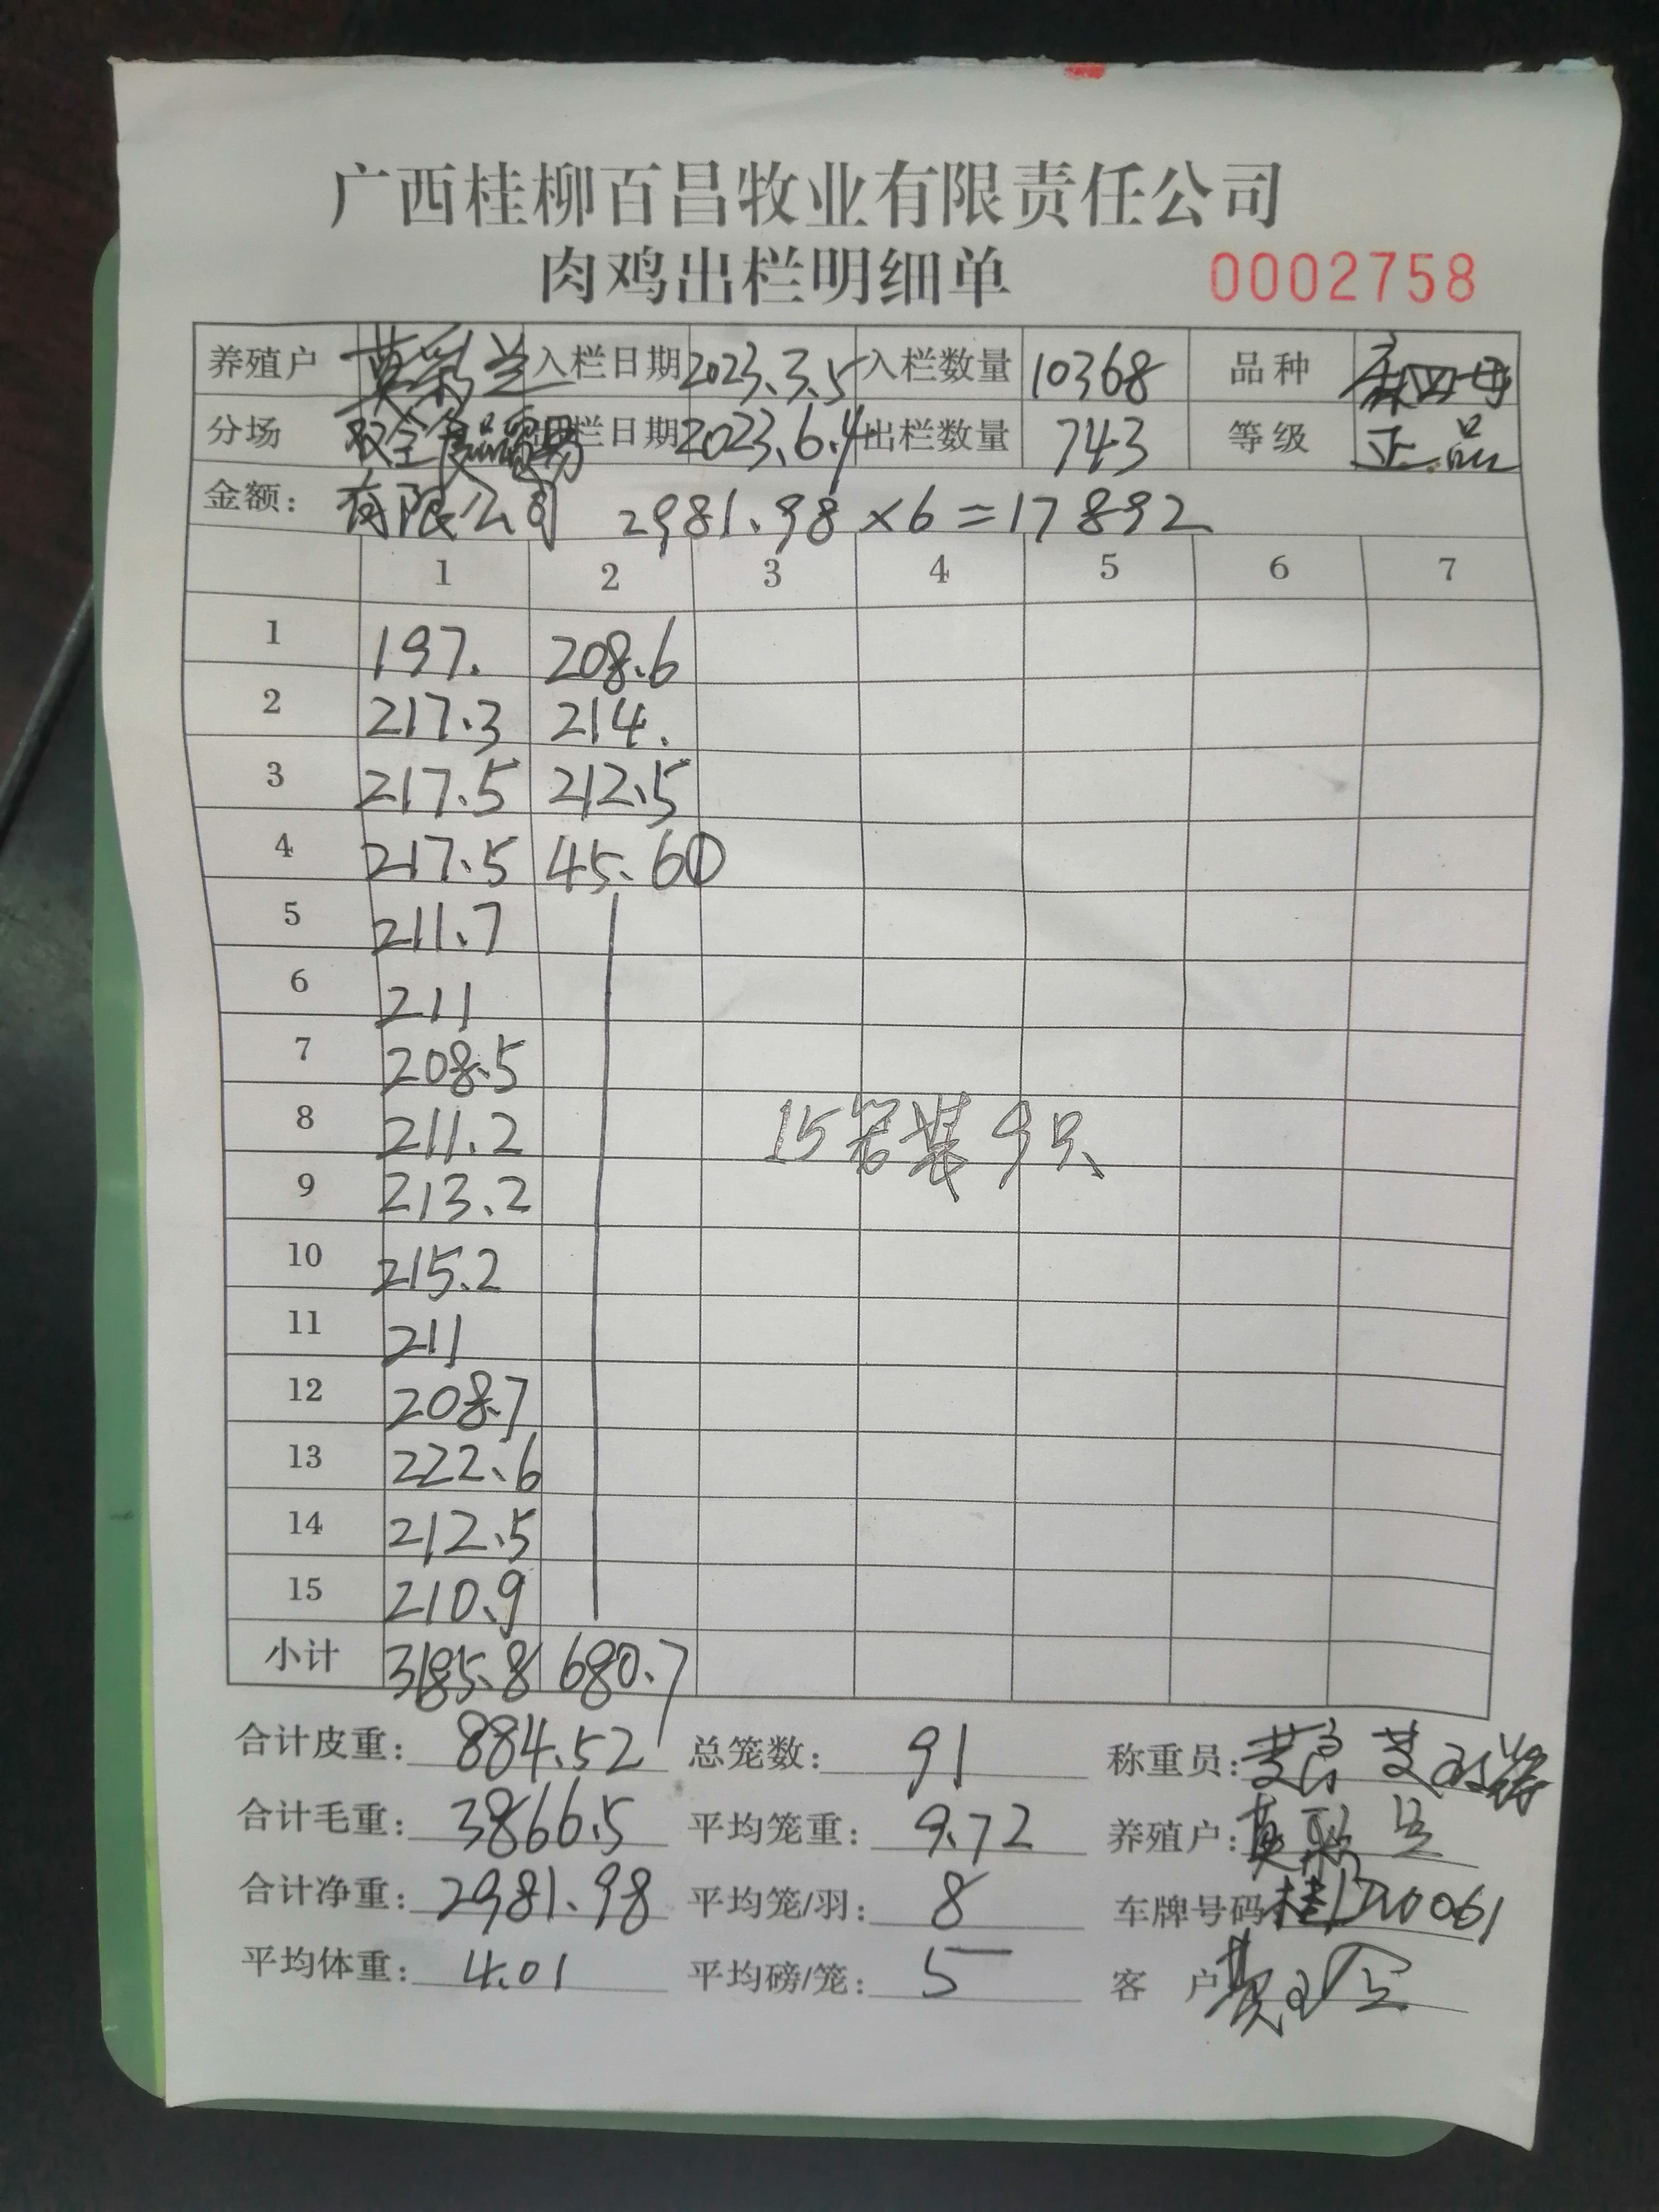 广西桂柳百昌牧业有限责任公司
肉鸡出栏明细单 0002758
养殖户 莫彩兰 入栏日期 2023.3.5 入栏数量 10368 品种 麻四号
分场 双全食品贸易 出栏日期 2023.6.4 出栏数量 743 等级 正品
金额: 有限公司 2981.98×6=17892
1 2 3 4 5 6 7
1 197. 208.6
2 217.3 214.
3 217.5 212.5
4 217.5 45.6①
5 211.7
6 211
7 208.5
8 211.2 15笼装9只
9 213.2
10 215.2
11 211
12 208.7
13 222.6
14 212.5
15 210.9
小计 3185.8 680.7
合计皮重: 884.52 总笼数: 91 称重员:
合计毛重: 3866.5 平均笼重: 9.72 养殖户: 莫彩兰
合计净重: 2981.98 平均笼/羽: 8 车牌号码
平均体重: 4.01 平均磅/笼: 5 客户